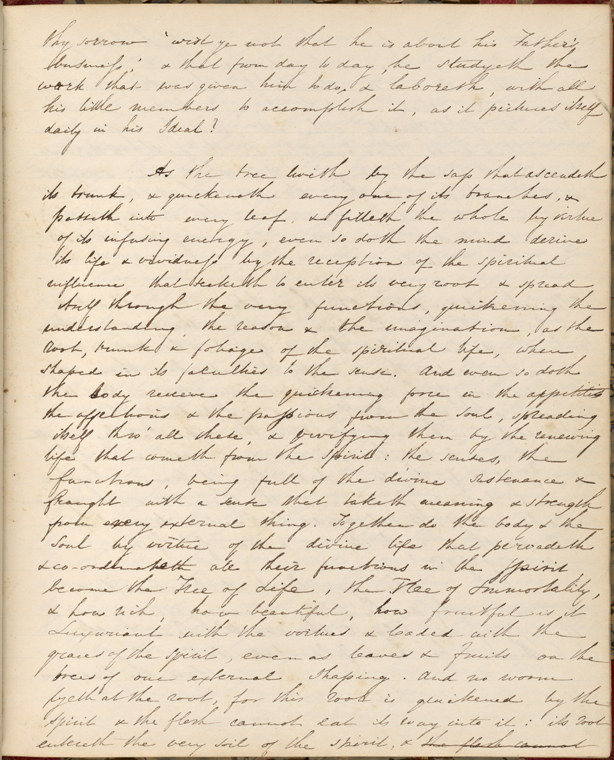 thy sorrow 'wist ye not that he is about his Father's
business,' & that from day to day, he studyeth the
work that was given him to do, & laboreth, with all
his little members to accomplish it, as it pictures itself
daily in his Ideal?
As the tree liveth by the sap that ascendeth
its trunk, & quickeneth every one of its branches, &
passeth into every leaf. & filleth the whole by virtue
of its infusing energy, even so doth the mind derive
its life & vividness by the reception of the spiritual
influence that seeketh to enter its very root & spread
itself through the very functions, quickening the
understanding, the reason & the imagination, as the
root, trunk & foliage of the spiritual life, when
shaped in its faculties to the sense. And even so doth
the body receive the quickening force in the appetites
the affections & the passions from the soul, spreading
itself thro' all these, & vivifying them by the renewing
life that cometh from the Spirit: the senses, the
functions, being full of the divine sustenance &
fraught with a sense that taketh meaning & strength
from every external thing. Together do the body & the
soul by virtue of the divine life that pervadeth
& co-ordinateth all their functions in the Spirit
become the Tree of Life, the Tree of Immortality,
& how rich, how beautiful, how fruitful is it
Luxuriant with the virtues & loaded with the
graces of the Spirit, even as leaves & fruits on the
trees of our external shaping. And no worm
lyeth at the root, for this root is quickened by the
Spirit & the flesh cannot eat its way into it: its root
entereth the very soil of the spirit, & the flesh cannot